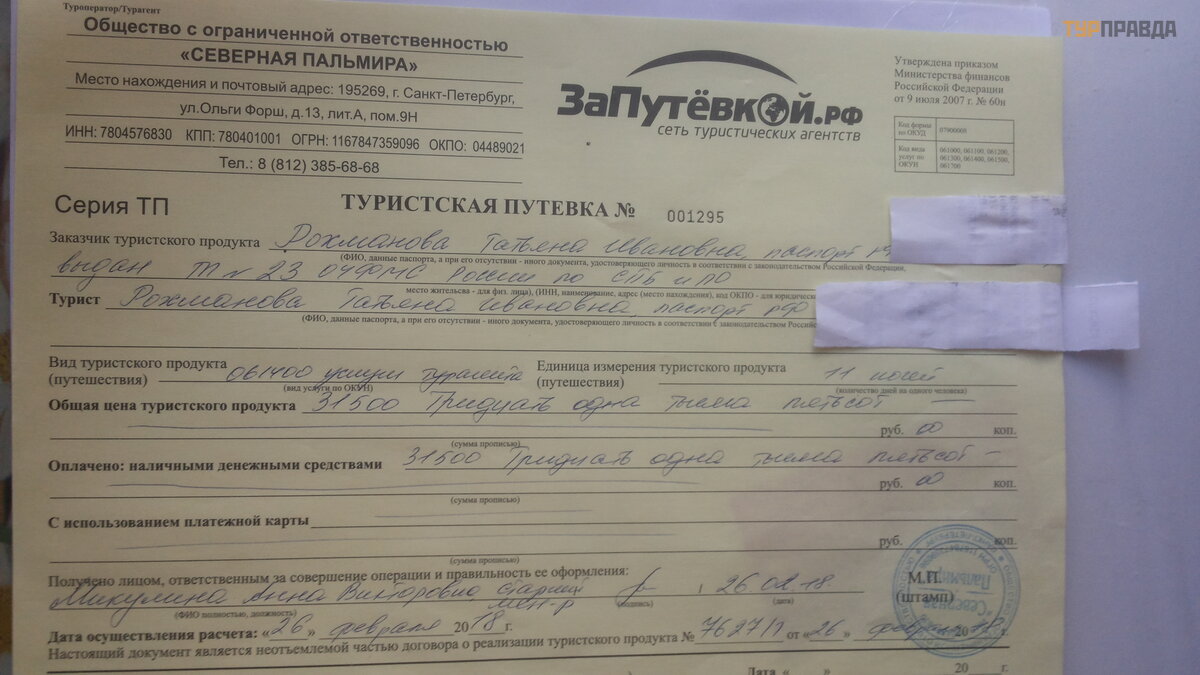 Туроператор/Турагент
Общество с ограниченной ответственностью
«СЕВЕРНАЯ ПАЛЬМИРА»
Место нахождения и почтовый адрес: 195269, г. Санкт-Петербург,
ул.Ольги Форш, д.13, лит.А, пом.9Н
ИНН: 7804576830 КПП: 780401001 ОГРН: 1167847359096 ОКПО: 04489021
Тел.: 8 (812) 385-68-68
ЗаПутёвкой.рф
сеть туристических агентств
ТУРПРАВДА
Утверждена приказом
Министерства финансов
Российской Федерации
от 9 июля 2007 г. № 60н
Код формы по ОКУД 07900008
Код вида услуг по ОКУН 061000, 061100, 061200, 061300, 061400, 061500, 061700
Серия ТП
ТУРИСТСКАЯ ПУТЕВКА № 001295
Заказчик туристского продукта Рохманова Татьяна Ивановна, паспорт РФ
(ФИО, данные паспорта, а при его отсутствии - иного документа, удостоверяющего личность в соответствии с законодательством Российской Федерации,
выдан ТП № 23 ОУФМС России по СПБ и ЛО
место жительсва - для физ. лица), (ИНН, наименование, адрес (место нахождения), код ОКПО - для юридическ
Турист Рохманова Татьяна Ивановна, паспорт РФ
(ФИО, данные паспорта, а при его отсутствии - иного документа, удостоверяющего личность в соответствии с законодательством Россий
Вид туристского продукта (путешествия) 061400 услуги турагента
(вид услуги по ОКУН)
Единица измерения туристского продукта (путешествия) 11 ночей
(количество дней на одного человека)
Общая цена туристского продукта 31500 Тридцать одна тысяча пятьсот —
руб. 00 коп.
(сумма прописью)
Оплачено: наличными денежными средствами 31500 Тридцать одна тысяча пятьсот —
руб. 00 коп.
(сумма прописью)
С использованием платежной карты
руб. коп.
(сумма прописью)
Получено лицом, ответственным за совершение операции и правильность ее оформления:
Микулина Анна Викторовна, старший мен-р 26.02.18
(ФИО полностью, должность) (подпись) (дата)
М.П.
(штамп)
Дата осуществления расчета: «26» февраля 2018 г.
Настоящий документ является неотъемлемой частью договора о реализации туристского продукта № 7627/1 от «26» февраля 2018 г.
Дата « » 20 г.